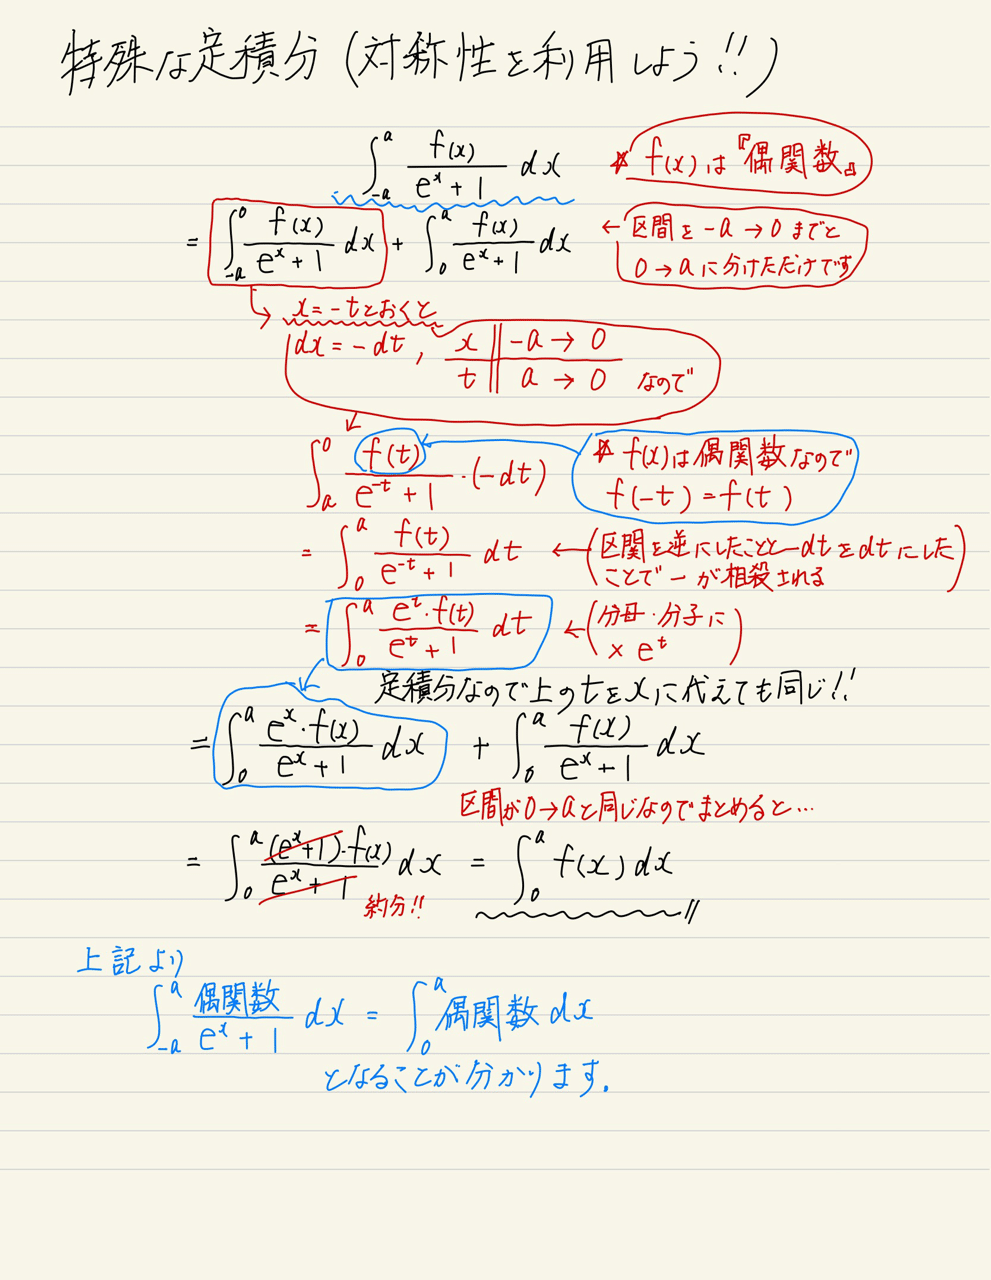 特殊な定積分(対称性を利用しよう!!)
∫_{-a}^{a} f(x)/(e^x+1) dx ☆ f(x)は『偶関数』
= ∫_{-a}^{0} f(x)/(e^x+1) dx + ∫_{0}^{a} f(x)/(e^x+1) dx ← 区間を -a→0までと
0→aに分けただけです
x=-tとおくと
dx=-dt, x || -a → 0
t || a → 0 なので
∫_{a}^{0} f(t)/(e^{-t}+1)・(-dt) ☆ f(x)は偶関数なので
f(-t)=f(t)
= ∫_{0}^{a} f(t)/(e^{-t}+1) dt ← (区間を逆にしたことと-dtをdtにした
ことで-が相殺される)
= ∫_{0}^{a} e^t・f(t)/(e^t+1) dt ← (分母・分子に
× e^t)
定積分なので上のtをxに代えても同じ!!
= ∫_{0}^{a} e^x・f(x)/(e^x+1) dx + ∫_{0}^{a} f(x)/(e^x+1) dx
区間が0→aと同じなのでまとめると…
= ∫_{0}^{a} (e^x+1)・f(x)/(e^x+1) dx = ∫_{0}^{a} f(x)dx
約分!!
上記より
∫_{-a}^{a} 偶関数/(e^x+1) dx = ∫_{0}^{a} 偶関数 dx
となることが分かります.